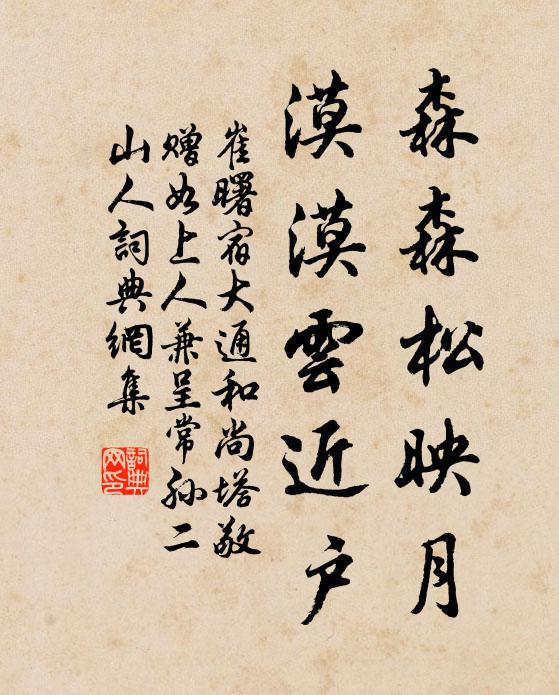 森森松映月
漠漠雲近户
崔曙宿大通和尚塔敬
赠如上人兼呈常孙二
山人詞典網集
詞典
网印